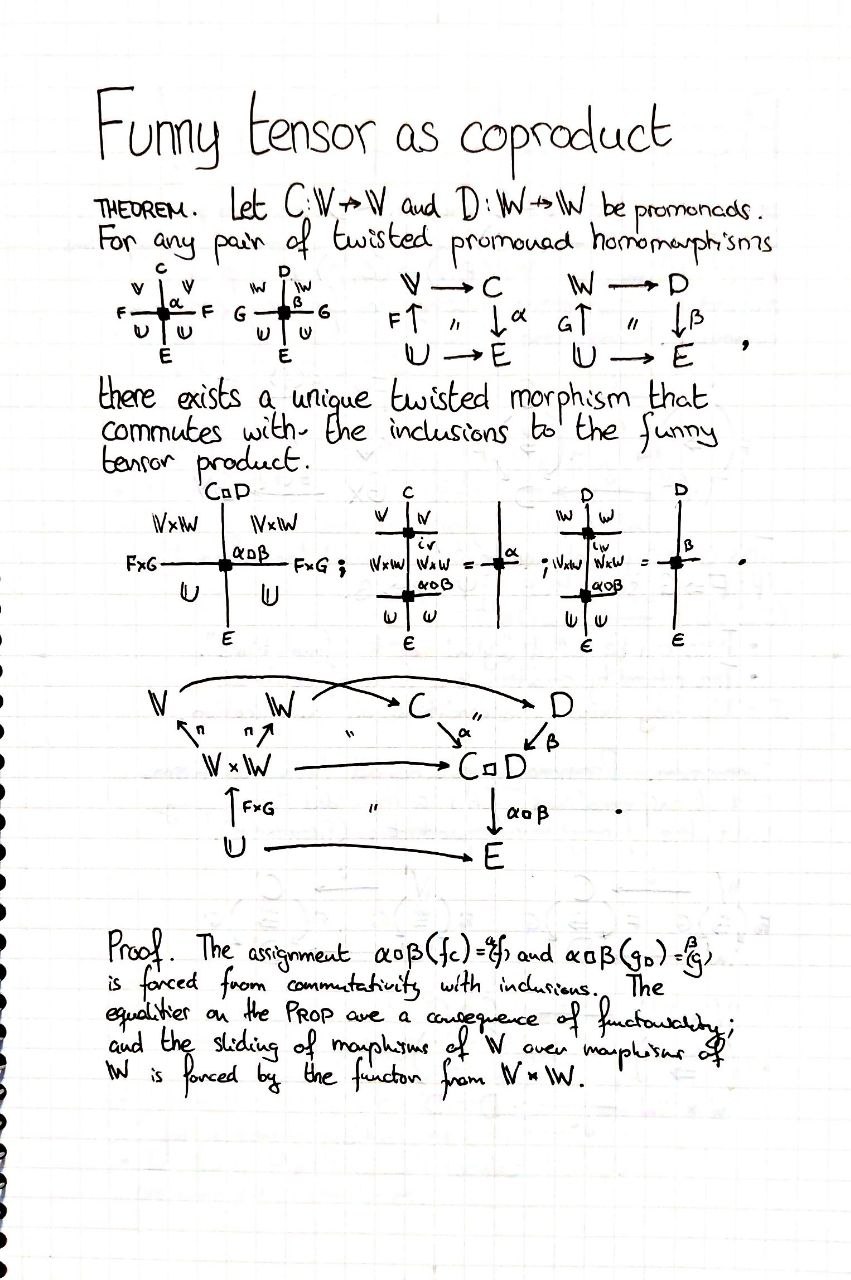 Funny tensor as coproduct
THEOREM. Let C:𝕍⇸𝕍 and D:𝕎⇸𝕎 be promonads.
For any pair of twisted promonad homomorphisms
C D
𝕍 𝕍 𝕎 𝕎 𝕍 → C 𝕎 → D
F α F G β G F↑ " ↓α G↑ " ↓β
𝕌 𝕌 𝕌 𝕌 𝕌 → E 𝕌 → E ,
E E
there exists a unique twisted morphism that
commutes with the inclusions to the funny
tensor product.
C□D C D D
𝕍×𝕎 𝕍×𝕎 𝕍 𝕍 𝕎 𝕎
α□β iv α iw β
F×G F×G ; 𝕍×𝕎 𝕍×𝕎 = ; 𝕍×𝕎 𝕍×𝕎 = .
𝕌 𝕌 α□β α□β
𝕌 𝕌 𝕌 𝕌
E E E E
𝕍 𝕎 C " D
π π " α β
𝕍×𝕎 → C□D
↑F×G " ↓α□β .
𝕌 → E
Proof. The assignment α□β(fc)=α(f) and α□β(gD)=β(g)
is forced from commutativity with inclusions. The
equalities on the PROP are a consequence of functoriality;
and the sliding of morphisms of 𝕍 over morphisms of
𝕎 is forced by the functor from 𝕍×𝕎.